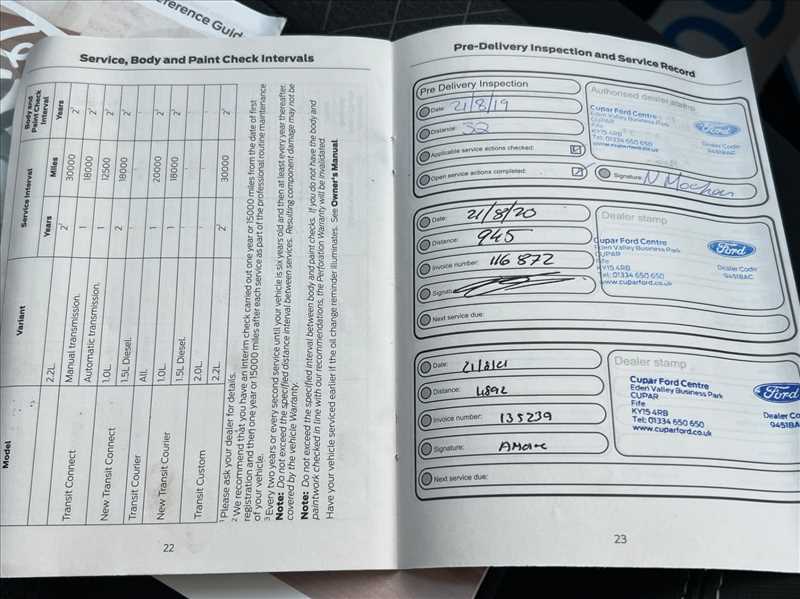 eference Guid
Service, Body and Paint Check Intervals
Model
Variant
Service Interval
Body and Paint Check Interval
Years
Miles
Years
2.2L.
Transit Connect
Manual transmission. 2² 30000 2³
Automatic transmission. 1 18000 2³
New Transit Connect
1.0L. 1 12500 2³
1.5L Diesel. 2 18000 2³
Transit Courier
All.
New Transit Courier
1.0L. 1 20000 2³
1.5L Diesel. 1 18000 2³
Transit Custom
2.0L.
2.2L. 2² 30000 2³
¹ Please ask your dealer for details.
² We recommend that you have an interim check carried out one year or 15000 miles from the date of first
registration and then one year or 15000 miles after each service as part of the professional routine maintenance
of your vehicle.
³ Every two years or every second service until your vehicle is six years old and then at least every year thereafter.
Note: Do not exceed the specified distance interval between services. Resulting component damage may not be
covered by the vehicle Warranty.
Note: Do not exceed the specified interval between body and paint checks. If you do not have the body and
paintwork checked in line with our recommendations, the Perforation Warranty will be invalidated.
Have your vehicle serviced earlier if the oil change reminder illuminates. See Owner's Manual.
22
Pre-Delivery Inspection and Service Record
Pre Delivery Inspection
Date: 21/8/19
Distance: 32
Applicable service actions checked:
Open service actions completed:
Authorised dealer stamp
Cupar Ford Centre
Eden Valley Business Park
CUPAR
Fife
KY15 4RB
Tel: 01334 650 650
www.cuparford.co.uk
Ford
Dealer Code
9451BAC
Signature: N
Date: 21/8/20
Distance: 945
Invoice number: 116872
Signature:
Next service due:
Dealer stamp
Cupar Ford Centre
Eden Valley Business Park
CUPAR
Fife
KY15 4RB
Tel: 01334 650 650
www.cuparford.co.uk
Ford
Dealer Code
9451BAC
Date: 21/8/21
Distance: 4892
Invoice number: 135239
Signature:
Next service due:
Dealer stamp
Cupar Ford Centre
Eden Valley Business Park
CUPAR
Fife
KY15 4RB
Tel: 01334 650 650
www.cuparford.co.uk
Ford
Dealer Co
9451BA
23